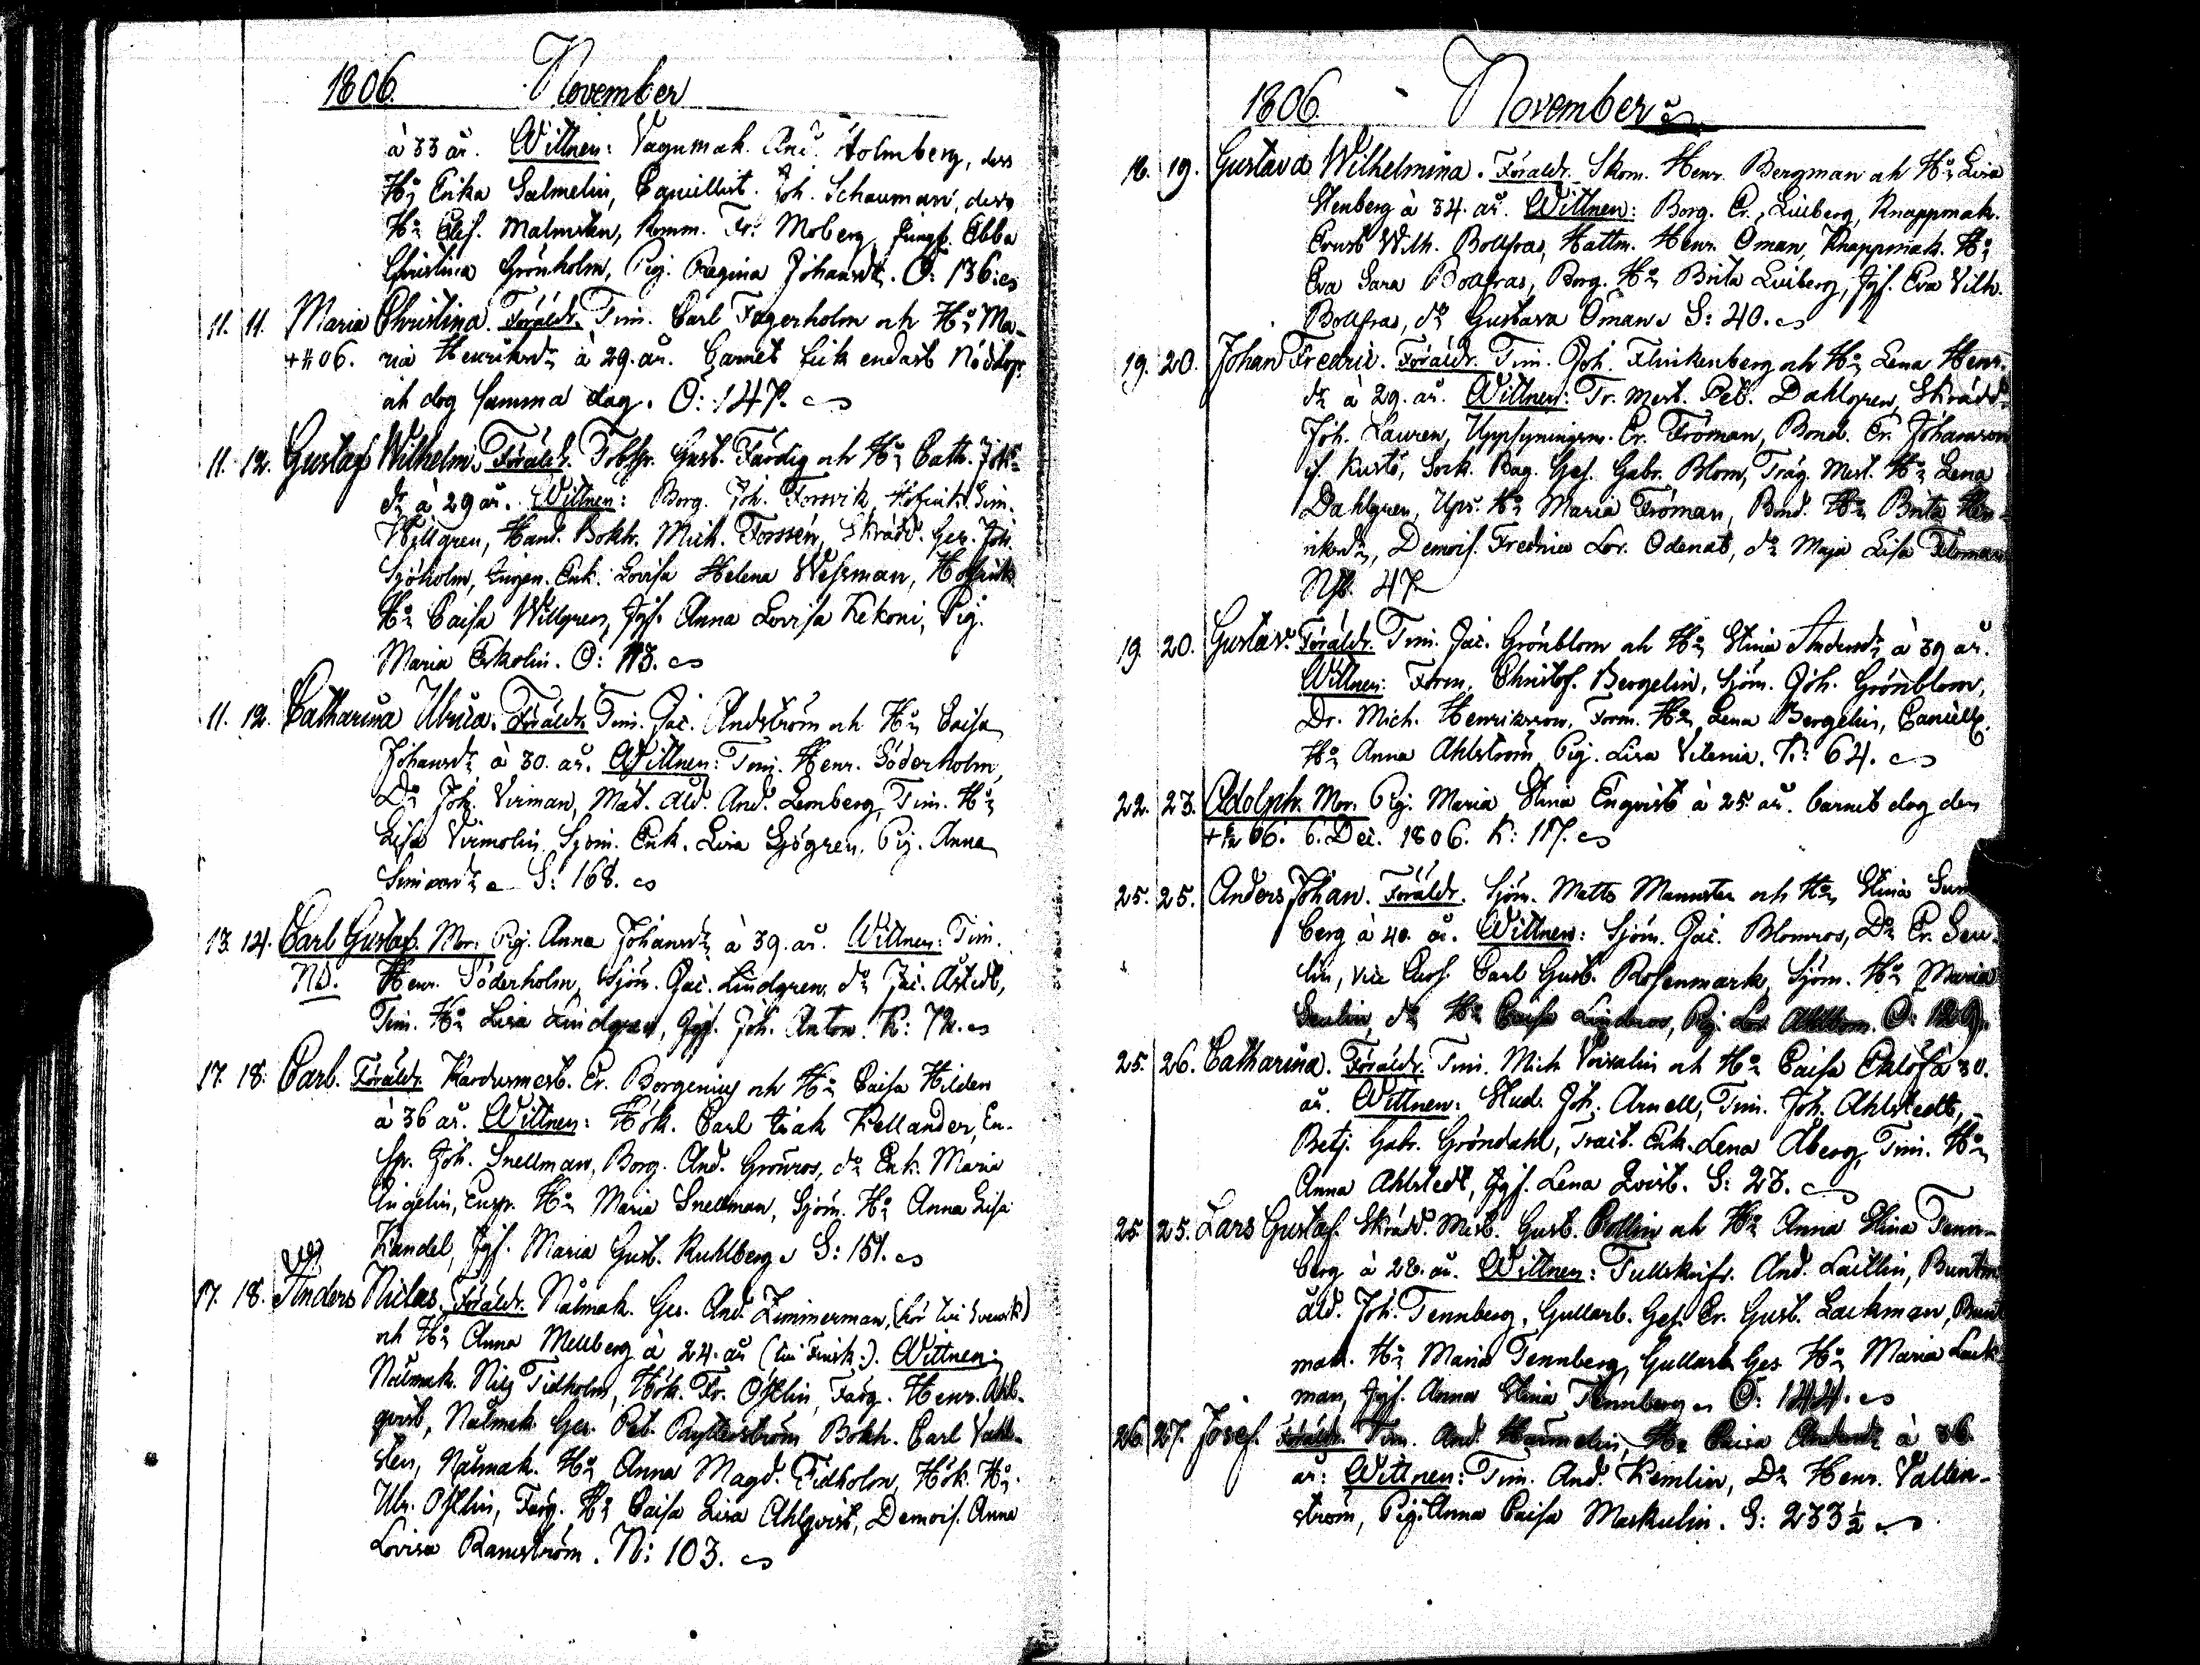 1806. November
à 33 år. Wittnen: Vagnmak. And. Holmberg, dess
Hu Erika Salmelin, Joh. Schauman, dess
Hu Elis. Malmsten, Komm. Fr. Moberg, Jungf. Ebba
Christina Grönholm, Pig. Regina Johansdr. Ö: 136.
11. 11. Maria Christina. Föräldr. Tim. Carl Fagerholm och Hu Ma-
ria Henriksdr à 29. år. Barnet fick endast Nöddop
och dog samma dag. Ö: 147.
11. 12. Gustaf Wilhelm. Föräldr. Gust. Färdig och Hu Cath. Joh.
dr à 29 år. Wittnen: Borg. Joh. Forsvik, Sim.
Willgren, Hand. Bokh. Mich. Forssén, Skrädd. Ges. Joh.
Sjöholm, Enk. Lovisa Helena Wessman,
Hu Caisa Willgren, Jgf. Anna Lovisa Kekoni, Pig.
Maria Eskolin. Ö: 113.
11. 12. Catharina Ulrica. Föräldr. Tim. Jac. Andström och Hu Caisa
Johansdr à 30. år. Wittnen: Tim. Henr. Söderholm,
Do Joh. Virman, Mål. Åld. And. Lemberg, Tim. Hu
Lisa Virmolin, Sjöm. Enk. Lisa Sjögren, Pig. Anna
S: 168.
13. 14. Carl Gustaf. Mor: Pig. Anna Johansdr à 39. år. Wittnen: Tim.
Henr. Söderholm, Sjöm. Jac. Lindgren, do Jac. Åstedt,
Tim. Hu Lisa Lindgren, Jgf. Joh. Anton. K: 72.
17. 18. Carl. Föräldr. Kardusmest. Er. Borgenius och Hu Caisa Hilden
à 36 år. Wittnen: Hök. Carl Isak Kellander, En-
sp. Joh. Snellman, Borg. And. Grönros, do Enk. Maria
Angelin, Ensp. Hu Maria Snellman, Sjöm. Hu Anna Lisa
Kandel, Jgf. Maria Gust. Kuhlberg. S: 151.
17. 18. Anders Niclas. Föräldr. Nålmak. Ges. And. Zimmerman, (hör till Svensk)
och Hu Anna Mellberg à 24. år (till Finsk.). Wittnen:
Nålmak. Nils Tidholm, Hök. Fr. Östlin, Färg. Henr. Ahl-
qvist, Nålmak. Ges. Pet. Rytterström, Bokh. Carl Vahl-
sten, Nålmak. Hu Anna Magd. Tidholm, Hök. Hu
Ulr. Östlin, Färg. Hu Caisa Lisa Ahlqvist, Demois. Anna
Lovisa Ramström. N: 103.
1806. November
18. 19. Gustava Wilhelmina. Föräldr. Skom. Henr. Bergman och Hu Lisa
Stenberg à 34. år. Wittnen: Borg. Er. Liliberg, Knappmak.
Ernst Wilh. Bollfras, Hattm. Henr. Öman, Knappmak. Hu
Eva Sara Bollfras, Borg. Hu Brita Liliberg, Jgf. Eva Vilh.
Bollfras, do Gustava Öman. S: 40.
19. 20. Johan Fredric. Föräldr. Tim. Joh. Flinkenberg och Hu Lena Henr.
dr à 29. år. Wittnen: Tr. mest. Pet. Dahlgren, Skrädd.
Joh. Lauren, Uppsyningsm. Er. Fröman, Bond. Er. Johansson
if. Kustö, Sock. Bag. Ges. Gabr. Blom, Träg. Mest. Hu Lena
Dahlgren, Ups. Hu Maria Fröman, Bond. Hu Brita Hen-
riksdr, Demois. Fredrica Lov. Odenat, do Maja Lisa
47
19. 20. Gustav. Föräldr. Tim. Jac. Grönblom och Hu Stina Andersdr à 39 år.
Wittnen: Form. Christof. Bergelin, Sjöm. Joh. Grönblom,
Dr. Mich. Henriksson, Form. Hu Lena Bergelin,
Hu Anna Ahlström, Pig. Lisa Vilenia. K: 64.
22. 23. Adolph. Mor: Pig. Maria Stina Enqvist à 25 år. Barnet dog den
6. Dec. 1806. K: 117.
25. 25. Anders Johan. Föräldr. Sjöm. Matts Mannsten och Hu Stina
berg à 40. år. Wittnen: Sjöm. Jac. Blomros, Do Er. Seu-
lin, vice Carl Gust. Rosenmark, Sjöm. Hu Maria
Seulin, do Hu Caisa Lindros, Pig. Lov. Ahlbom. Ö: 129.
25. 26. Catharina. Föräldr. Tim. Mich Voisalin och Hu Caisa Eklöf à 30.
år. Wittnen: Stud. Joh. Arnell, Tim. Joh. Ahlstedt,
Betj. Gabr. Gröndahl, Trait. Enk. Lena Åberg, Tim. Hu
Anna Ahlstedt, Jgf. Lena Qvist. S: 23.
25. 25. Lars Gustaf. Skrädd. Mest. Gust. Bollin och Hu Anna Stina Tenn-
berg à 28. år. Wittnen: Tullskrifv. And. Laillin,
åld. Joh. Tennberg, Gullarb. Ges. Er. Gust. Lackman,
mak. Hu Maria Tennberg, Gullarb. Ges. Hu Maria Lack-
man, Jgf. Anna Stina Tennberg. Ö: 144.
26. 27. Josef. Föräldr. Tim. And. Hu Caisa Andersdr à 36
år: Wittnen: Tim. And. Kemlin, Do Henr. Vallen-
ström, Pig. Anna Caisa Maskulin. S: 233½